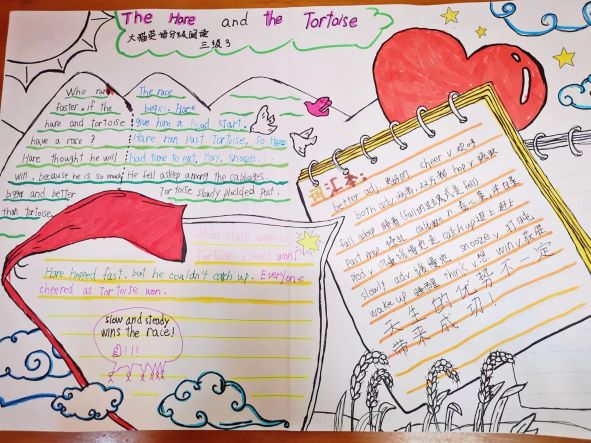 The Hare and the Tortoise
大猫英语分级阅读
三级3
Who ran
faster, if the
hare and Tortoise
have a race?
Hare thought he will
win, because he is so much
bigger and better
than tortoise.
The race
began. Hare
give him a head start.
Hare ran past Tortoise, so
had time to eat, play, snooze...
He fell asleep among the cabbages.
Tortoise slowly plodded past.
When Hare woke up,
Tortoise won!
Hare hopped fast, but he couldn't catch up. Everyone
cheered as Tortoise won.
slow and steady
wins the race!
!!!
词汇本:
better adj. cheer v. 欢呼
both adv. 两者,双方都 hop v. 跳跃
fall asleep 睡着 (fall的过去式是 fell)
past prep. 经过 cabbage n. 卷心菜,洋白菜
plod v. 沉重缓慢地走 catch up 追上,赶上
slowly adv. 缓慢地 snooze v. 打盹
wake up 睡醒 think v. 想 win v. 获胜
天生的优势不一定
带来成功!